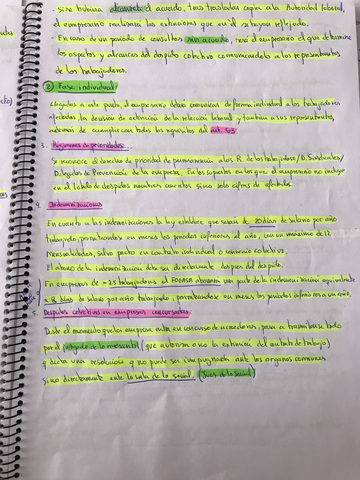 - Si se hubiese alcanzado el acuerdo, tras trasladar copia a la Autoridad laboral,
el empresario realizará las extinciones que en él se hayan reflejado.
- En caso de un periodo de consultas sin acuerdo, será el empresario el que determine
los aspectos y alcances del despido colectivo comunicándolo a los representantes
de los trabajadores.
2) Fase individual:
Llegados a este punto, el empresario deberá comunicar de forma individual a los trabajadores
afectados la decisión de extinción de la relación laboral y también a sus representantes,
además de cumplir con todos los requisitos del art. 53.
3. Regímenes de prioridades:
Se reconoce el derecho de prioridad de permanencia a los R. de los trabajadores / D. Sindicales /
Delegados de Prevención de la empresa. En los supuestos en los que el empresario no incluye
en el listado de despidos nombres concretos sino solo cifras de afectados.
4. Indemnizaciones
En cuanto a las indemnizaciones la ley establece que serán de 20 días de salario por año
trabajado, prorrateándose en meses los periodos inferiores al año, con un máximo de 12
mensualidades, salvo pacto en contrato individual o convenio colectivo.
El abono de la indemnización debe ser directamente después del despido.
En empresas de -25 trabajadores el FOGASA abonará una parte de la indemnización equivalente
a 8 días de salario por año trabajado, prorrateándose en meses los periodos inferiores a un año.
5. Despidos colectivos en empresas concursadas:
Desde el momento que la empresa entra en concurso de acreedores, pasa a tramitarse todo
por el juzgado de lo mercantil (que autoriza o no la extinción del contrato de trabajo)
y dicta una resolución q no puede ser impugnada ante los órganos comunes
sino directamente ante la sala de lo social. (Juez de lo Social)